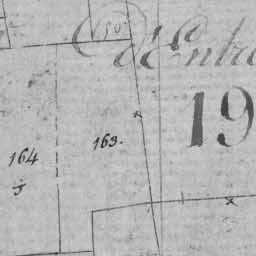 150
d'Entre
19
164
163.